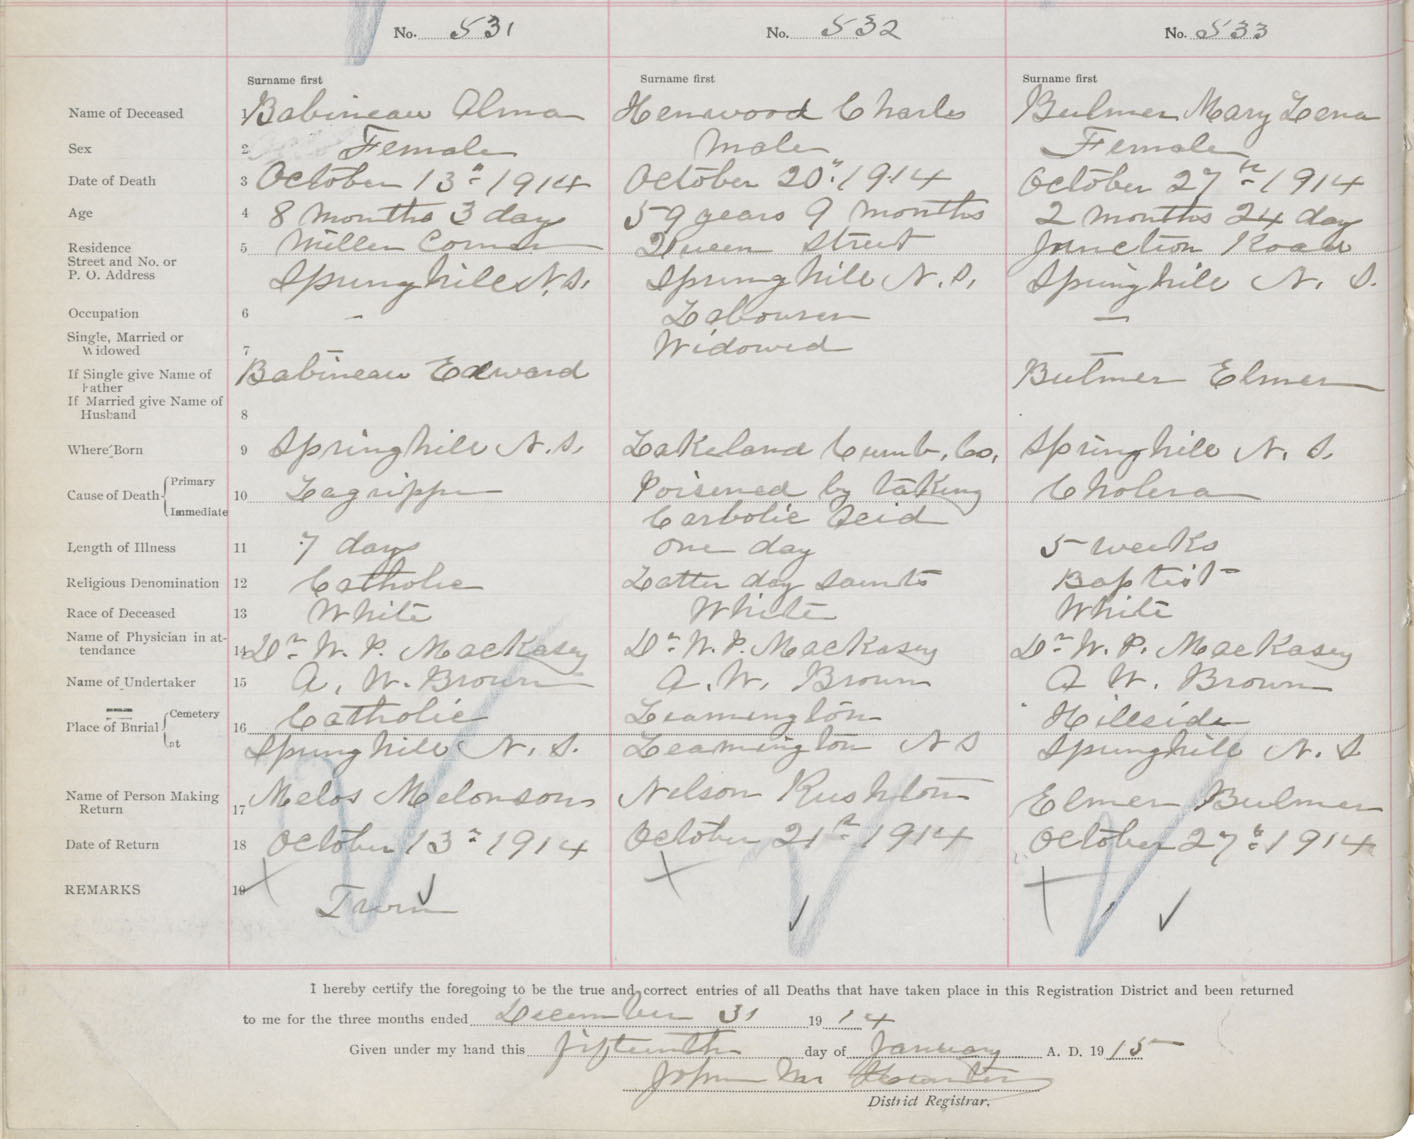 No. 531 No. 532 No. 533
Surname first Surname first Surname first
Name of Deceased 1 Babineau Alma Henwood Charles Bulmer Mary Lena
Sex 2 Female Male Female
Date of Death 3 October 13th 1914 October 20th 1914 October 27th 1914
Age 4 8 months 3 days 59 years 9 months 2 months 24 day
Residence 5 Miller Corner Queen Street Junction Road
Street and No. or
P. O. Address Springhill N.S. Springhill N.S. Springhill N. S.
Occupation 6 – Labourer –
Single, Married or
Widowed 7 Widowed
If Single give Name of Babineau Edward Bulmer Elmer
Father
If Married give Name of
Husband 8
Where Born 9 Springhill N.S. Lakeland Cumb. Co. Springhill N. S.
Cause of Death Primary 10 Lagrippe Poisened by taking Cholera
Immediate Carbolic Acid
Length of Illness 11 7 days one day 5 weeks
Religious Denomination 12 Catholic Latter day saints Baptist
Race of Deceased 13 White White White
Name of Physician in at-
tendance 14 Dr W. P. MacKasey Dr W. P. MacKasey Dr W. P. MacKasey
Name of Undertaker 15 A. W. Brown A. W. Brown A W. Brown
Place of Burial Cemetery 16 Catholic Leamington Hillside
at Springhill N. S. Leamington N S Springhill N. S
Name of Person Making
Return 17 Melos Melonson Nelson Rushton Elmer Bulmer
Date of Return 18 October 13th 1914 October 21st 1914 October 27th 1914
REMARKS 19 Twin
I hereby certify the foregoing to be the true and correct entries of all Deaths that have taken place in this Registration District and been returned
to me for the three months ended December 31 1914
Given under my hand this fifteenth day of January A. D. 1915
John M Hunter
District Registrar.